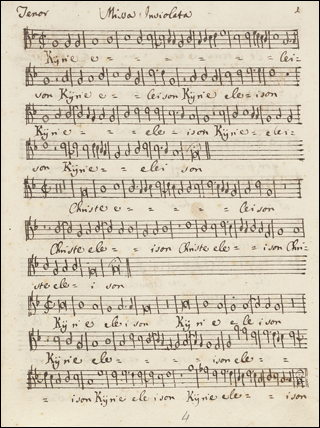 Tenor Missa Inviolata 1
Kÿrie e = = = = = lei=
son Kÿrie e= = leison Kÿrie ele = ison
Kÿrie e= = = ele= ison Kÿrie = elei=
son Kÿrie = elei son
Christe e = = = leison
Christe ele= = = ison Christe ele= = ison Chri=
ste elei son
Kÿrie eleison Kÿrie eleison
Kÿrie ele= = = = ison ele=
= ison Kÿrie eleison Kÿrie eleison
4